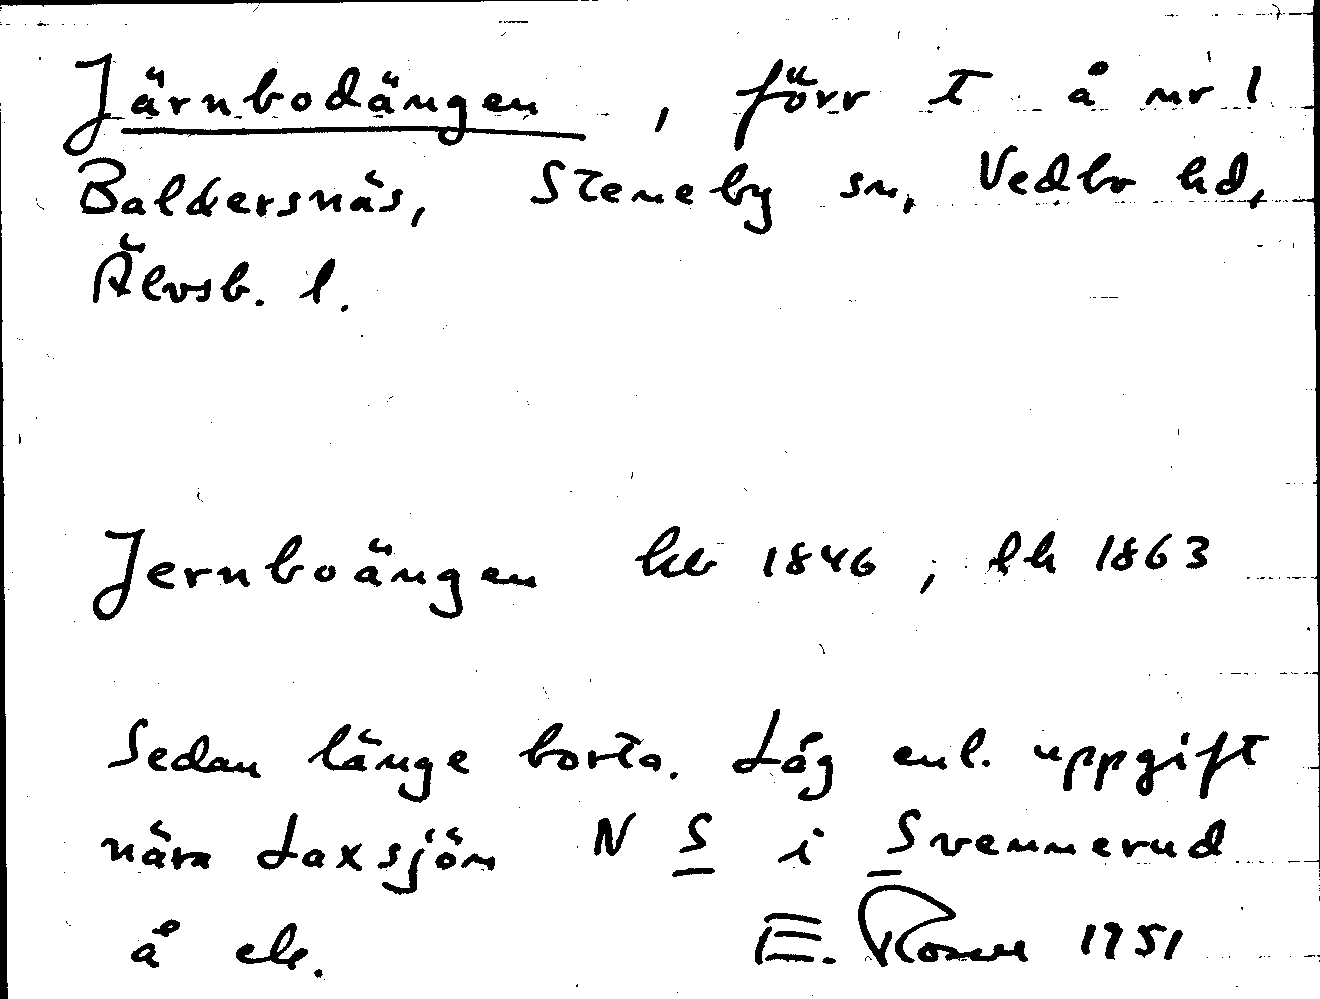 Järnbodängen, förr t å nr 1
Baldersnäs, Steneby sn, Vedbo hd,
Älvsb. l.
Jernboängen hb 1846, lh 1863
Sedan länge borta. Låg enl. uppgift
nära Laxsjön N S i Svennerud
å ek. E. Rosell 1951